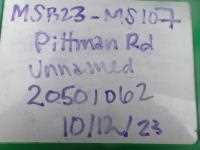 MSR23-MS107
Pittman Rd
Unnamed
20501062
10/12/23